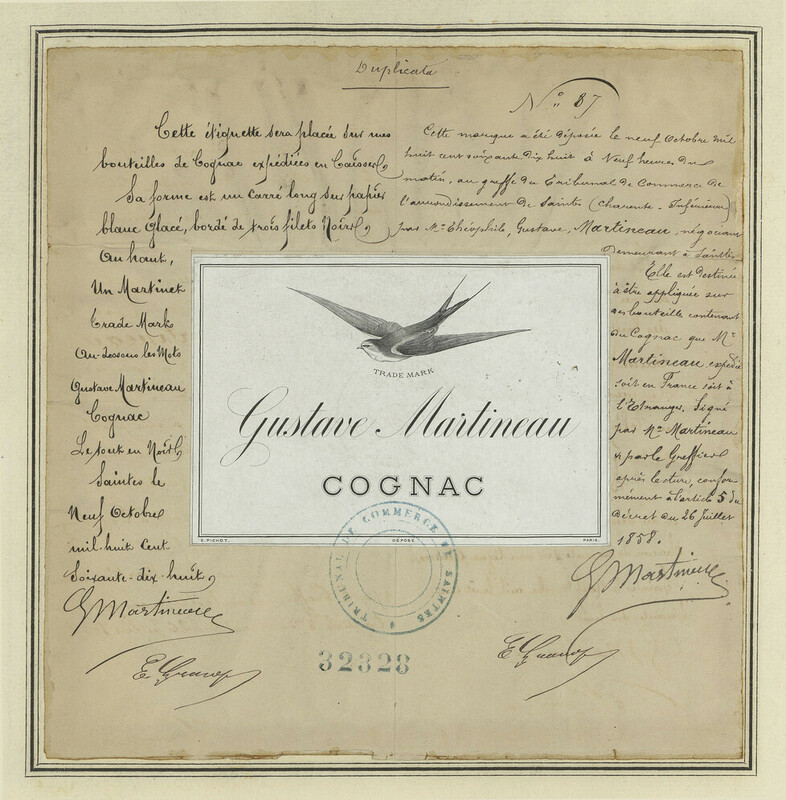 Duplicata
Nº 87
Cette étiquette sera placée sur mes
bouteilles de Cognac expédiées en Caisses
Sa forme est un carré long sur papier
blanc glacé, bordé de trois filets Noirs,
Au haut,
Un Martinet
Trade Mark
Au-dessous les Mots
Gustave Martineau
Cognac
Le tout en Noir
Saintes le
Neuf Octobre
mil-huit Cent
Soixante-dix-huit,
G Martineau
Cette marque a été déposée le neuf Octobre mil
huit cent soixante dix huit à Neuf heures du
matin, au greffe du Tribunal de Commerce de
l'arrondissement de Saintes (Charente-Inférieure)
par Mr Théophile, Gustave, Martineau, négociant
demeurant à Saintes
Elle est destinée
à être appliquée sur
ses bouteilles contenant
du Cognac que Mr
Martineau expédie
soit en France soit à
l'Etranger. Signé
par Mr Martineau
& par le Greffier
après lecture, confor-
mément à l'article 5 du
Décret du 26 Juillet
1858.
G Martineau
TRADE MARK
Gustave Martineau
COGNAC
E. PICHOT. DÉPOSÉ PARIS.
TRIBUNAL DE COMMERCE DE SAINTES
32328